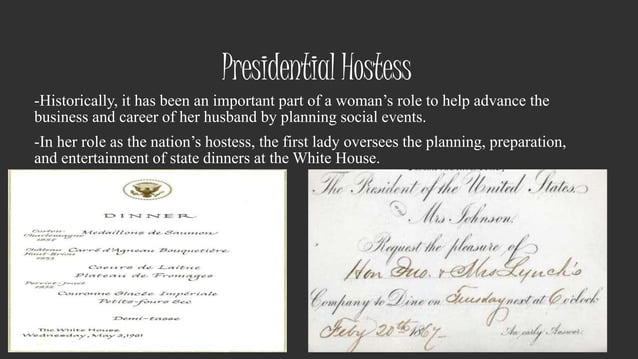 Presidential Hostess
-Historically, it has been an important part of a woman's role to help advance the
business and career of her husband by planning social events.
-In her role as the nation's hostess, the first lady oversees the planning, preparation,
and entertainment of state dinners at the White House.
DINNER
Corton-
Charlemagne
Medaillons de Saumon
Château
Haut-Brion
Carré d'Agneau Bouquetière
Coeurs de Laitue
Plateau de Fromages
Perrier-Jouët
Couronne Glacée Impériale
Petits-fours Sec
Demi-tasse
The White House
Wednesday, May 2, 1981
The President of the United States
Mrs. Johnson
Request the pleasure of
Hon Jno. & Mrs Lynch's
Company to Dine on Tuesday next at 6 o'clock
Feby 20th 1867
An early Answer.